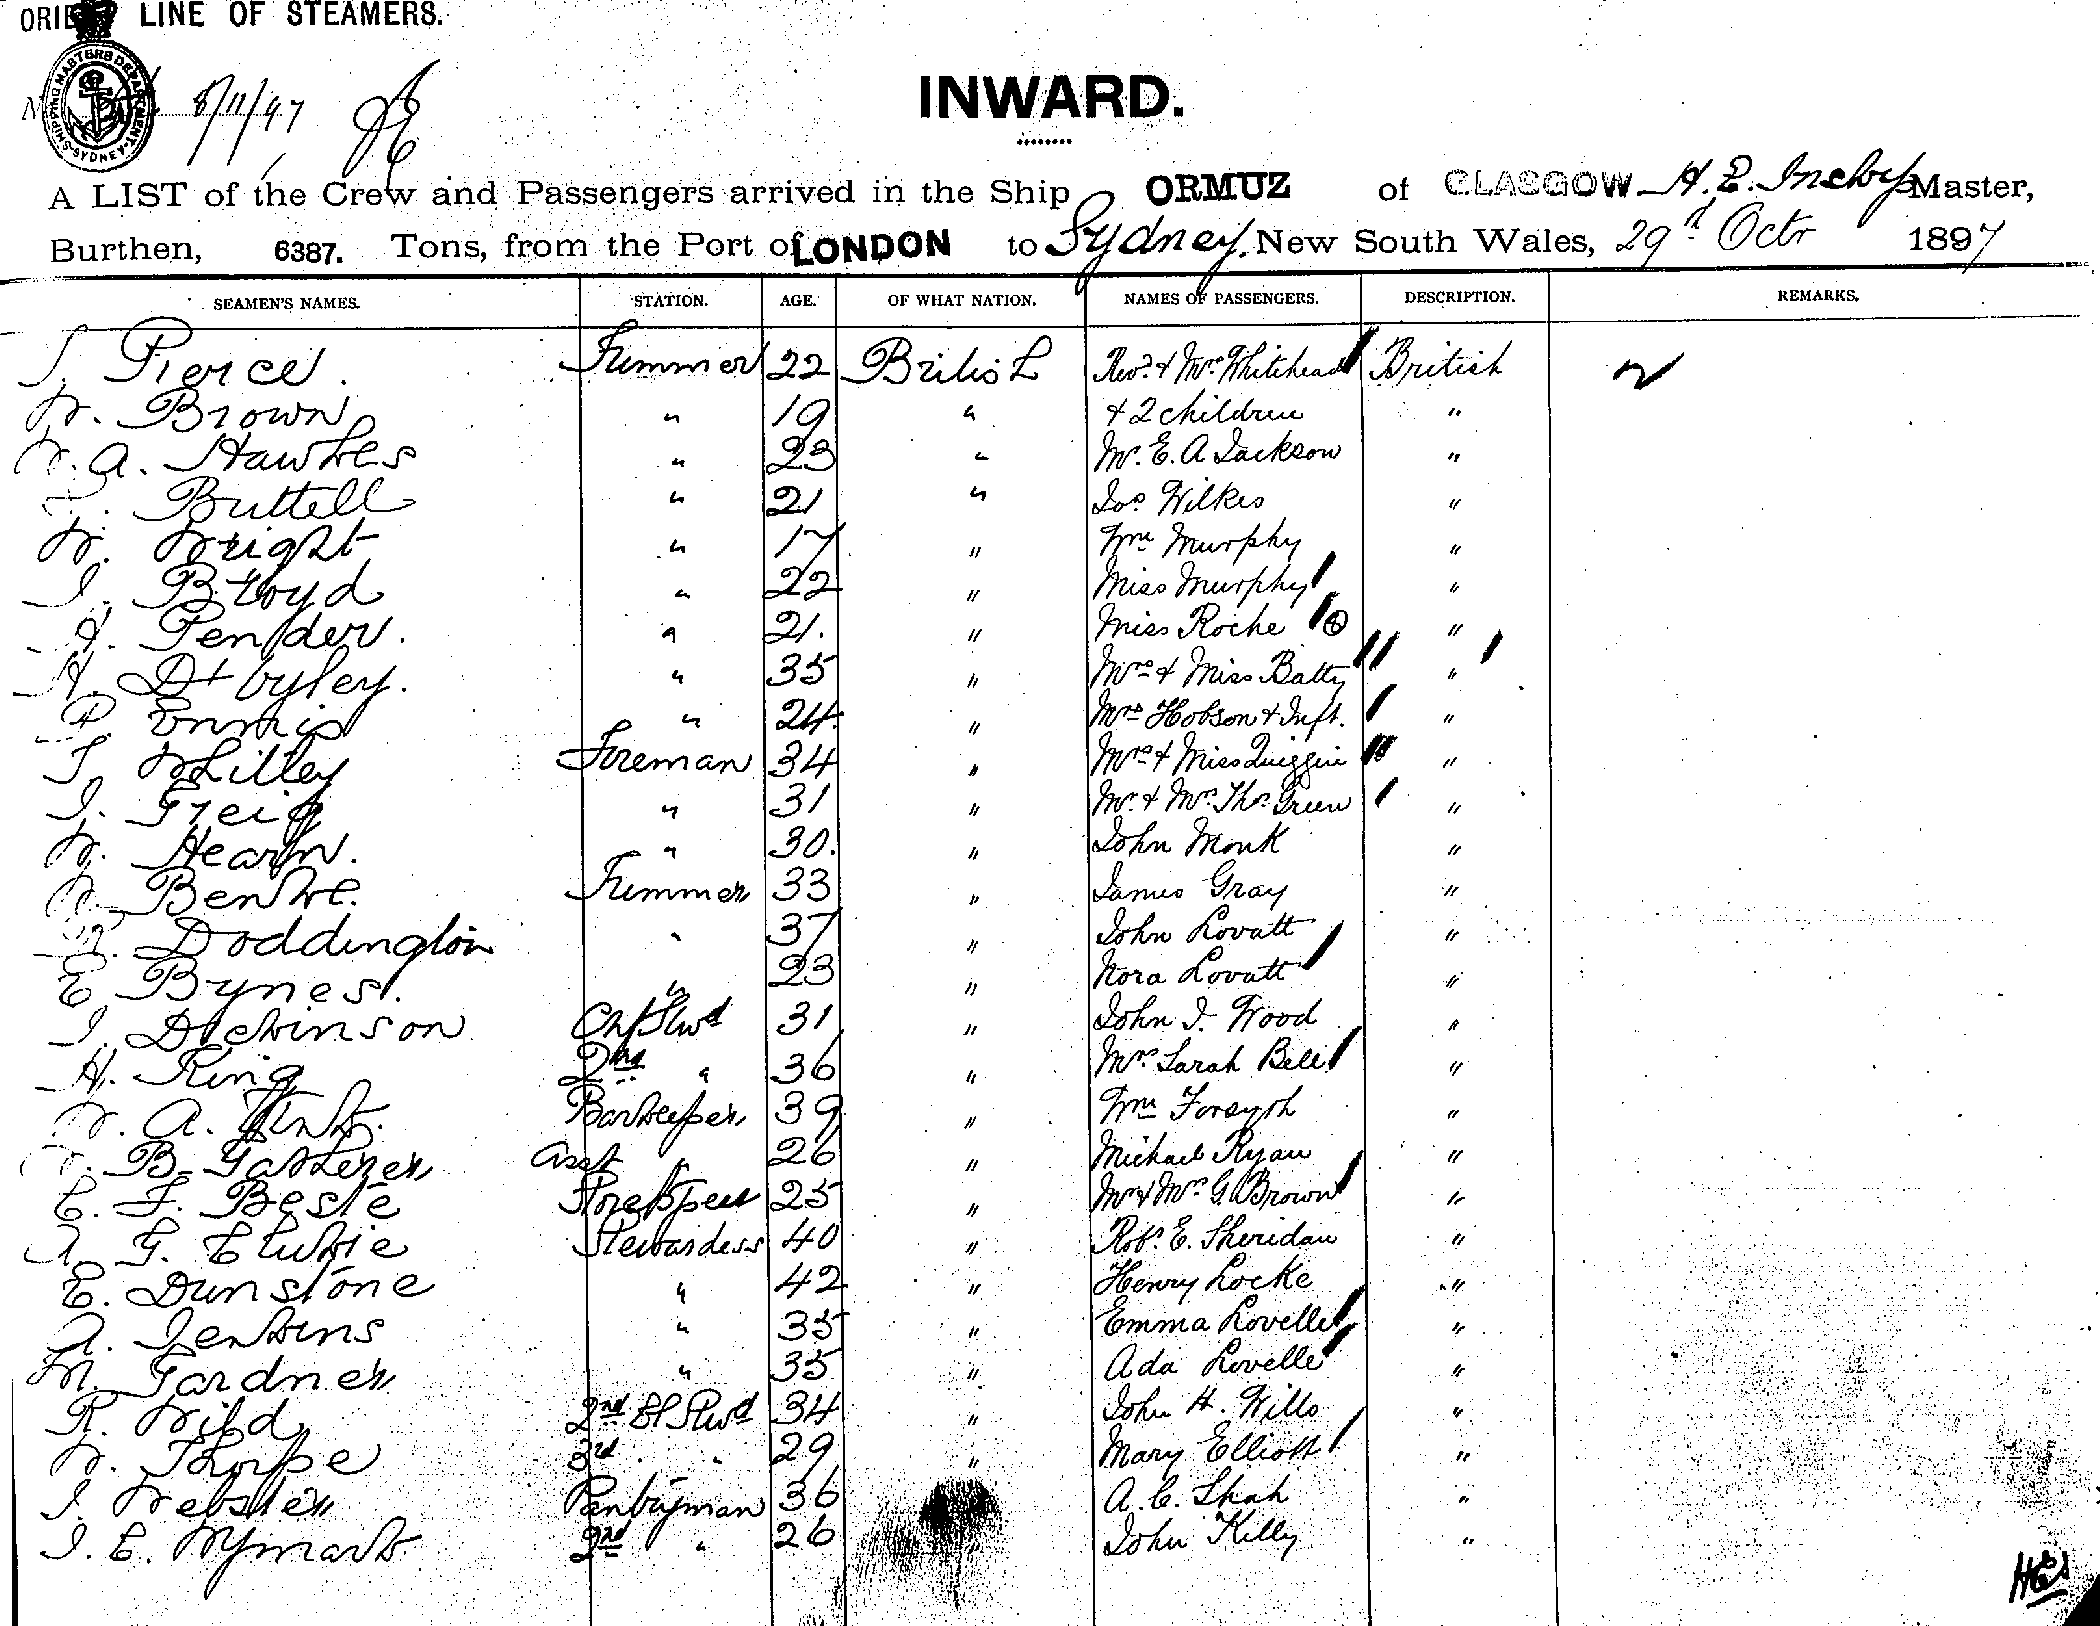 ORIENT LINE OF STEAMERS.
SHIPPING MASTERS DEPARTMENT SYDNEY
8/11/97
INWARD.
A LIST of the Crew and Passengers arrived in the Ship ORMUZ of GLASGOW H. E. Inskip Master,
Burthen, 6387. Tons, from the Port of LONDON to Sydney. New South Wales, 29th Octr 1897
SEAMEN'S NAMES. STATION. AGE. OF WHAT NATION. NAMES OF PASSENGERS. DESCRIPTION. REMARKS.
Pierce. Trimmer 22 British Revd. & Mrs Whitehead British
W. Brown " 19 " & 2 children "
W. A. Hawkes " 23 " Mr. E. A Jackson "
Bruttell " 21 " Jos. Wilkes "
W. Wright " 17 " Wm Murphy "
J. B. Loyd " 22 " Miss Murphy "
Pender. " 21. " Miss Roche "
H. " 35 " Mrs & Miss Batty "
P. Ennis " 24. " Mrs Hobson & Inft. "
Foreman 34 " Mrs & Miss Quiggin "
J. Greig " 31 " Mr. & Mrs. Thos. Green "
W. Hearn. " 30. " John Monk "
Trimmer 33 " James Gray "
Doddington " 37 " John Lovatt "
E Bynes. " 23 " Nora Lovatt "
J. Dickinson Chf Stwd 31 " John J. Wood "
H. King 2nd " 36 " Mrs. Sarah Bell "
W. A. Barkeeper 39 " Wm Forsyth "
B. Gatherer Asst " 26 " Michael Ryan "
C. F. Beste Storekpeer 25 " Mr & Mrs G. Brown "
A G. Stewardess 40 " Robt. E. Sheridan "
E. Dunstone " 42 " Henry Locke "
A. Jenkins " 35 " Emma Lovelle "
M. Gardner " 35 " Ada Lovelle "
R. Wild 2nd Stwd 34 " John H. Wills "
W. Thorpe 3rd " 29 " Mary Elliott "
J. Webster Pantryman 36 A. C. Shah "
J. E. Wymark 2nd " 26 " John Killy "